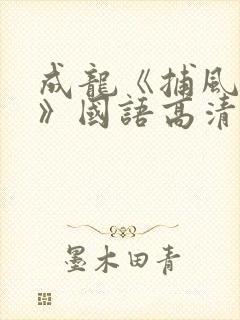 成龍《捕風
》國語高清
墨木田青